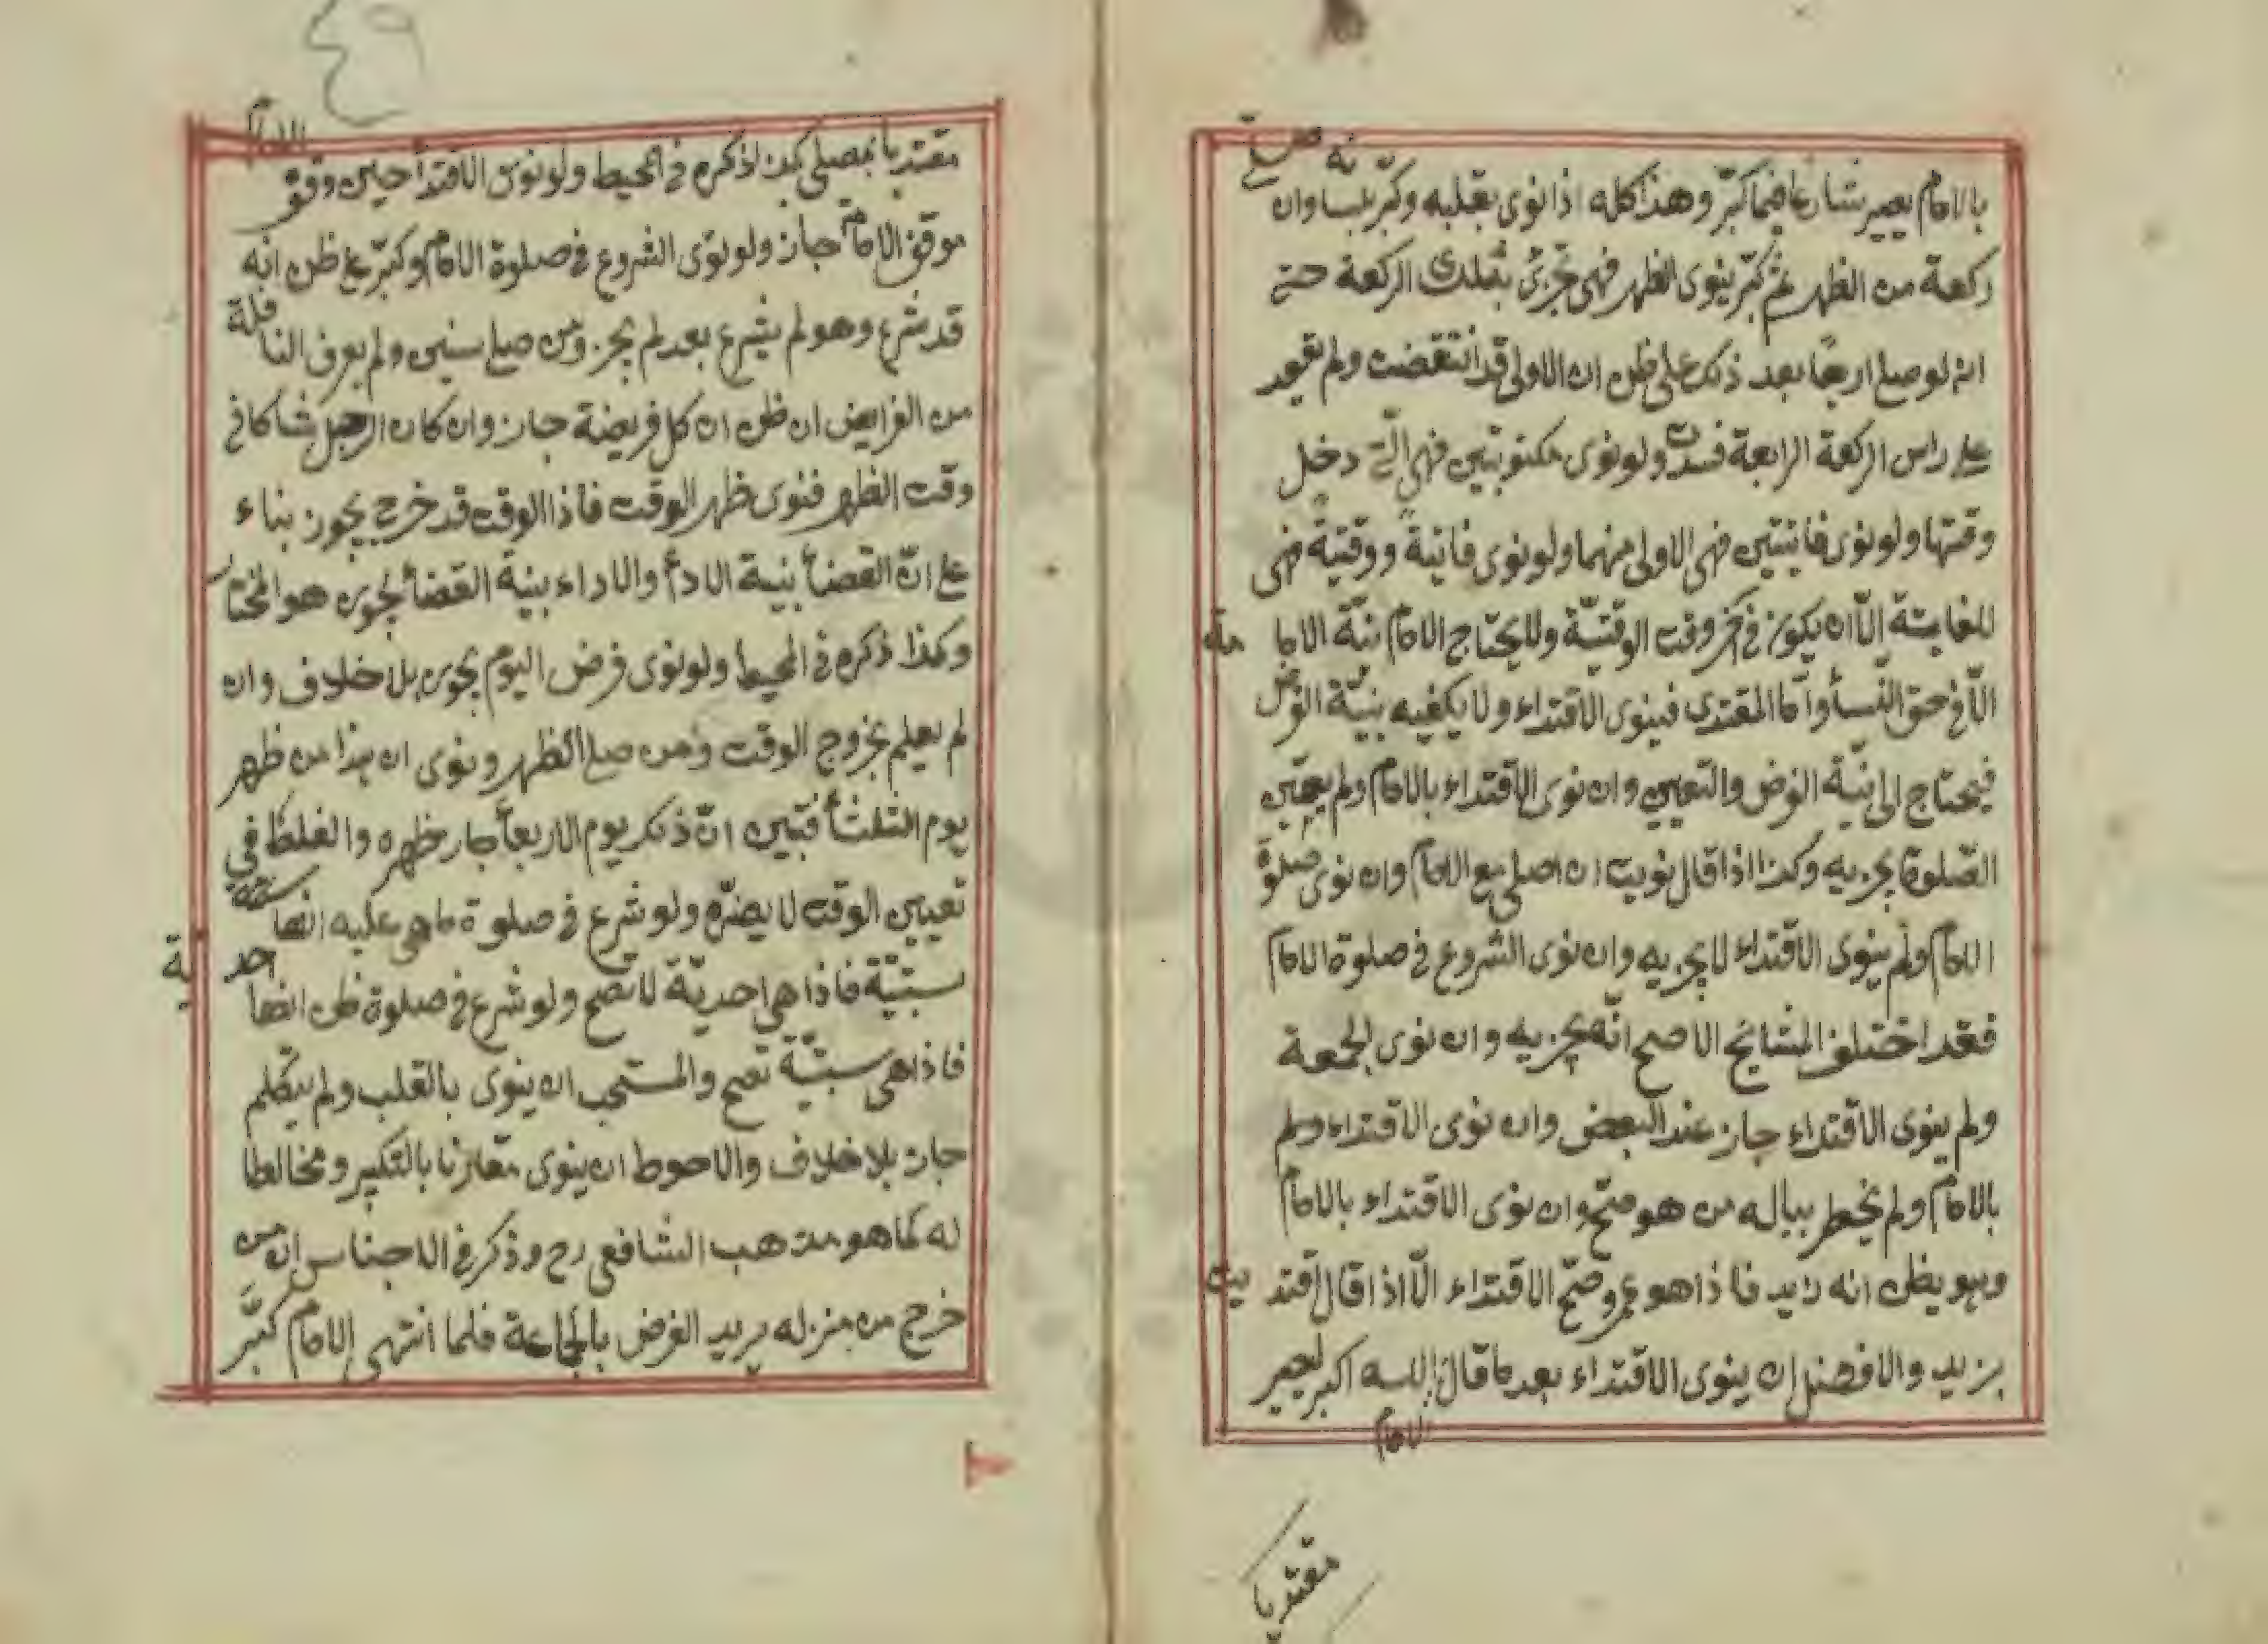 بالامام يصير شارعا فيما كبّر وهذا كله اذا نوى بقلبه وكبّر بلسانه وان صلى
ركعة من الظهر ثم كبّر ينوى الظهر فهى تجزئ بتلك الركعة حتى
انه لو صلى اربعًا بعد ذلك على ظن ان الاولى قد انتقضت ولم يقعد
على راس الركعة الرابعة فسدت ولو نوى مكتوبتين فهى الّتى دخل
وقتها ولو نوى فايتتين فهى الاولى منهما ولو نوى فايتةً ووقتيةً فهى
للفايتة الّا ان يكون فى آخر وقت الوقتيّة ولا يحتاج الامام نيّة الامامة
الّا فى حق النّسأ وامّا المقتدى فينوى الاقتداء ولا يكفيه بنيّة الفرض
فيحتاج الى نيّة الفرض والتعيين وان نوى الاقتداء بالامام ولم يعيّن
الصّلوة يجزيه وكذا اذا قال نويت ان اصلى مع الامام وان نوى صلوة
الامام ولم ينوى الاقتداء لا يجزيه وان نوى الشروع فى صلوة الامام
فقد اختلف المشايخ الاصح انّه يجزيه وان نوى الجمعة
ولم ينوى الاقتداء جاز عند البعض وان نوى الاقتداء ولم
بالامام ولم يخطر بباله من هو صحّ وان نوى الاقتداء بالامام
وهو يظن انه زايد فاذا هو عمرو صحّ الاقتداء الّا اذا قال اقتديت
بزيد والافضل ان ينوى الاقتداء بعد ما قال الامام الله اكبر ليصير
مقتديا
مقتديا بمصلى كذا ذكره فى المحيط ولو نوى الاقتدأ حين وقف الامام
موقف الامامة جاز ولو نوى الشروع فى صلوة الامام وكبّر على ظن انه
قد شرع وهو لم يشرع بعد لم يجز ومن صلى سنين ولم يعرف النافلة
من الفرايض ان ظن ان كل فريضة جاز وان كان الرجل شاكا فى
وقت الظهر فنوى ظهر الوقت فاذا الوقت قد خرج يجوز بناء
على انّ القضأ بنية الادأ والاداء بنية القضأ يجوز هو المختار
وكذا ذكره فى المحيط ولو نوى فرض اليوم يجوز بلا خلاف وان
لم يعلم بخروج الوقت ومن صلى الظهر ونوى ان هذا من ظهر
يوم الثلثأ فتبيّن انّ ذلك يوم الاربعأ جاز ظهره والغلط فى
تعيين الوقت لا يضرّه ولو شرع فى صلوة ما هى عليه انها سبتيّة
سبتيّة فاذا هى احديّة لا تصح ولو شرع فى صلوة ظن انها احدية
فاذا هى سبتيّة تصح والمستحب ان ينوى بالقلب ولم يتكلم
جاز بلا خلاف والاحوط ان ينوى مقارنا بالتكبير ومخالطا
له كما هو مذهب الشافعى رح وذكر فى الاجناس ان من
خرج من منزله يريد الفرض بالجماعة فلما انتهى الى الامام كبّر